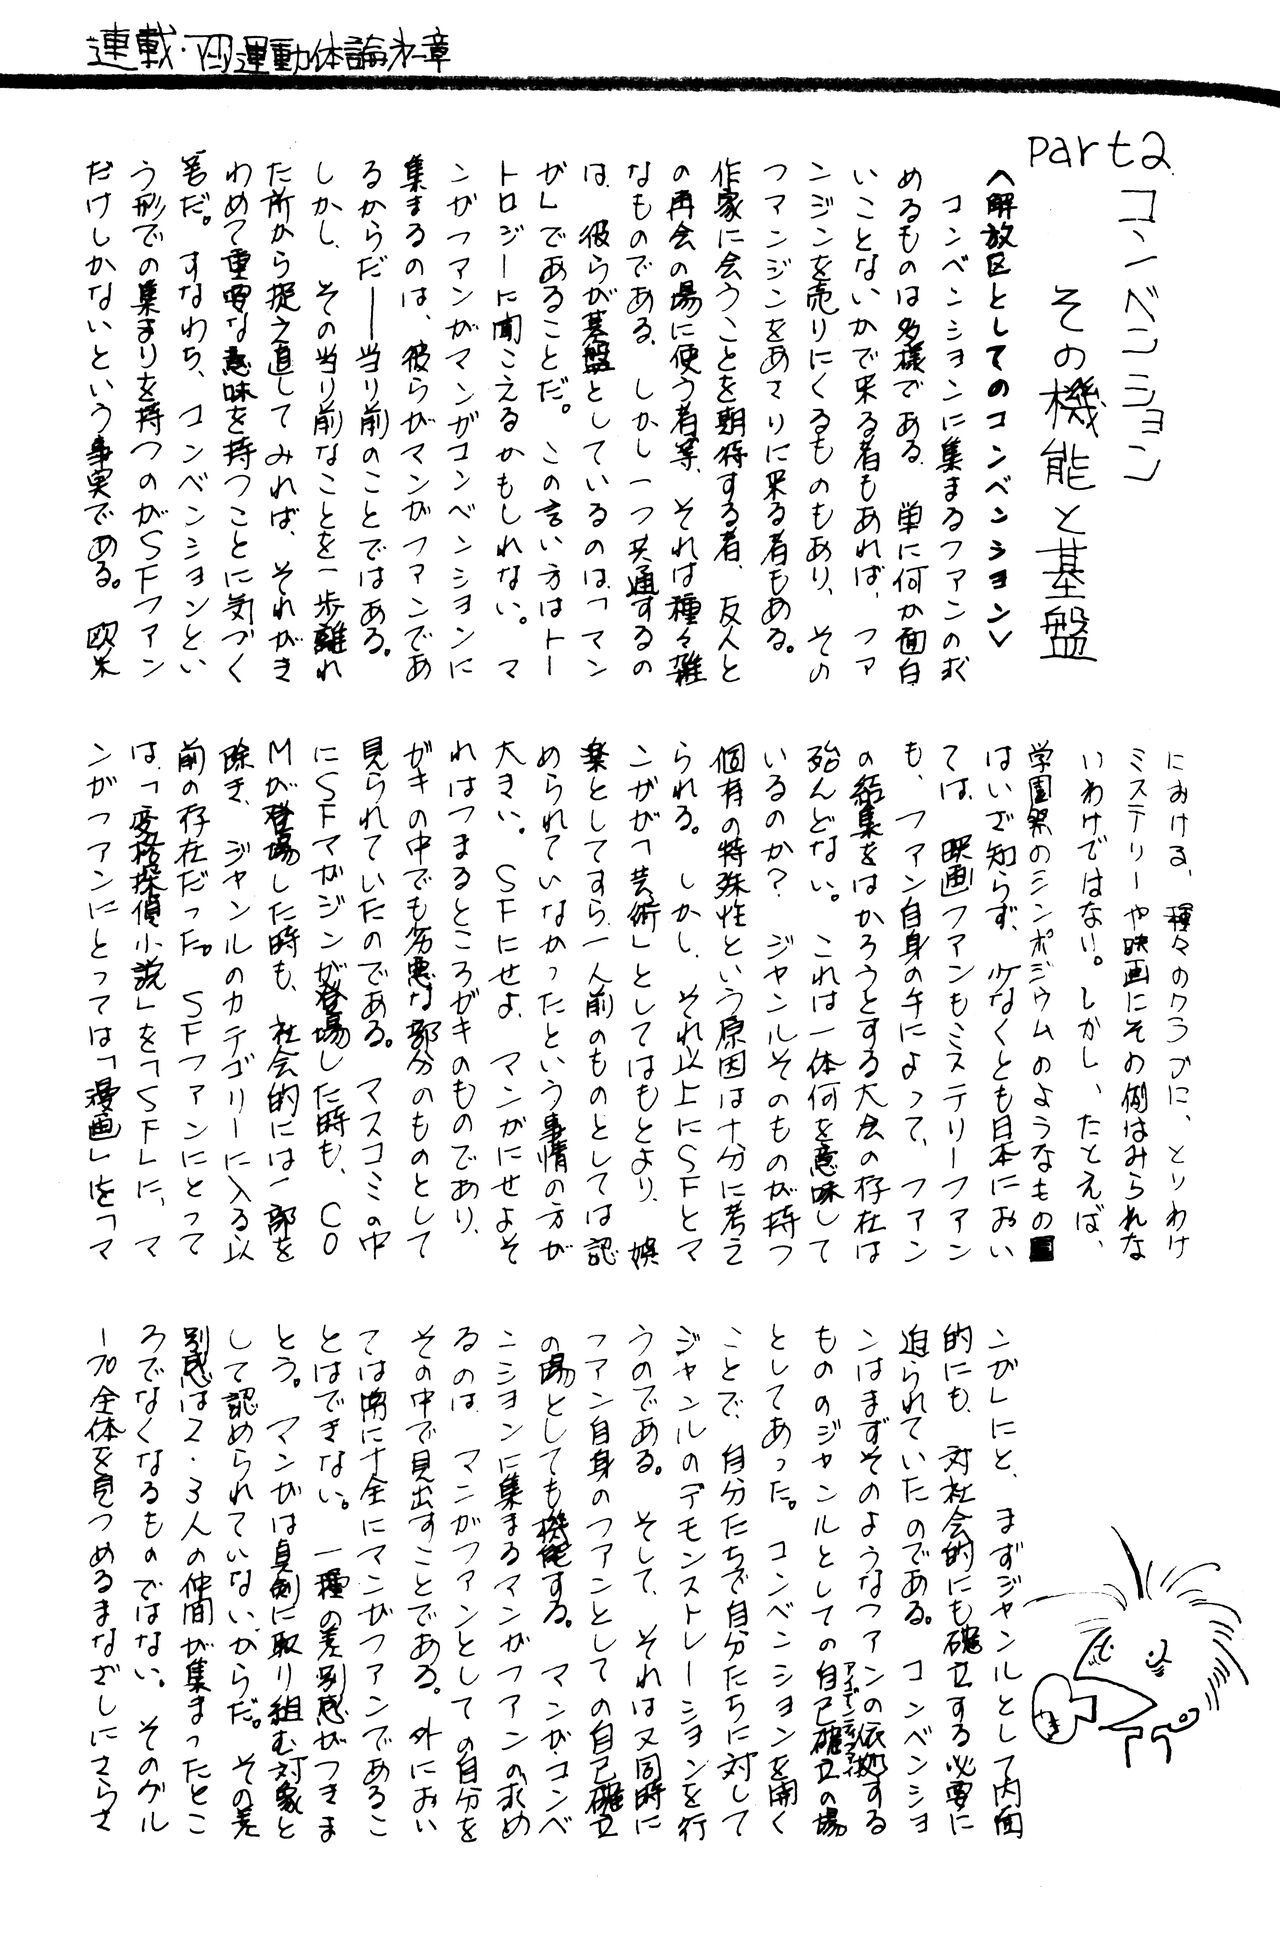 連載・📖運動体論第二章
part2
コンベンション
その機能と基盤
<解放区としてのコンベンション>
コンベンションに集まるファンの求
めるものは多様である。単に何か面白
いことないかで来る者もあれば、ファ
ンジンを売りにくるものもあり、その
ファンジンをあさりに来る者もある。
作家に会うことを期待する者、友人と
の再会の場に使う者等、それは種々雑
なものである。しかし一つ共通するの
は、彼らが基盤としているのは、「マン
が」であることだ。この言い方はトー
トロジーに聞こえるかもしれない。マ
ンガファンがマンガコンベンションに
集まるのは、彼らがマンガファンであ
るからだ――当り前のことではある。
しかし、その当り前なことを一歩離れ
た所から捉え直してみれば、それがき
わめて重要な意味を持つことに気づく
筈だ。すなわち、コンベンションとい
う形での集まりを持つのがSFファン
だけしかないという事実である。欧米
における、種々のクラブに、とりわけ
ミステリーや映画にその例はみられな
いわけではない。しかし、たとえば、
学園祭のシンポジウムのようなもの
はいざ知らず、少なくとも日本におい
ては、映画ファンもミステリーファン
も、ファン自身の手によって、ファン
の結集をはかろうとする大会の存在は
殆んどない。これは一体何を意味して
いるのか？ジャンルそのものが持つ
個有の特殊性という原因は十分に考え
られる。しかし、それ以上にSFとマ
ンガが「芸術」としてはもとより、娯
楽としてすら一人前のものとしては認
められていなかったという事情の方が
大きい。SFにせよ、マンガにせよそ
れはつまるところガキのものであり、
ガキの中でも劣悪な部分のものとして
見られていたのである。マスコミの中
にSFマガジンが登場した時も、CO
Mが登場した時も、社会的には一部を
除き、ジャンルのカテゴリーに入る以
前の存在だった。SFファンにとって
は、「変格探偵小説」を「SF」に、マ
ンガファンにとっては「漫画」を「マ
ンガ」にと、まずジャンルとして内面
的にも、対社会的にも確立する必要に
迫られていたのである。コンベンショ
ンはまずそのようなファンの依拠する
もののジャンルとしての自己確立の場
アイデンティファイ
としてあった。コンベンションを開く
ことで、自分たちで自分たちに対して
ジャンルのデモンストレーションを行
うのである。そして、それは又同時に
ファン自身のファンとしての自己確立
の場としても機能する。マンガ・コンベ
ンションに集まるマンガファンの求め
るのは、マンガファンとしての自分を
その中で見出すことである。外におい
ては常に十全にマンガファンであるこ
とはできない。一種の差別感がつきま
とう。マンガは真剣に取り組む対象と
して認められていないからだ。その差
別感は2・3人の仲間が集まったとこ
ろでなくなるものではない。そのグル
ープ全体を見つめるまなざしにさらさ